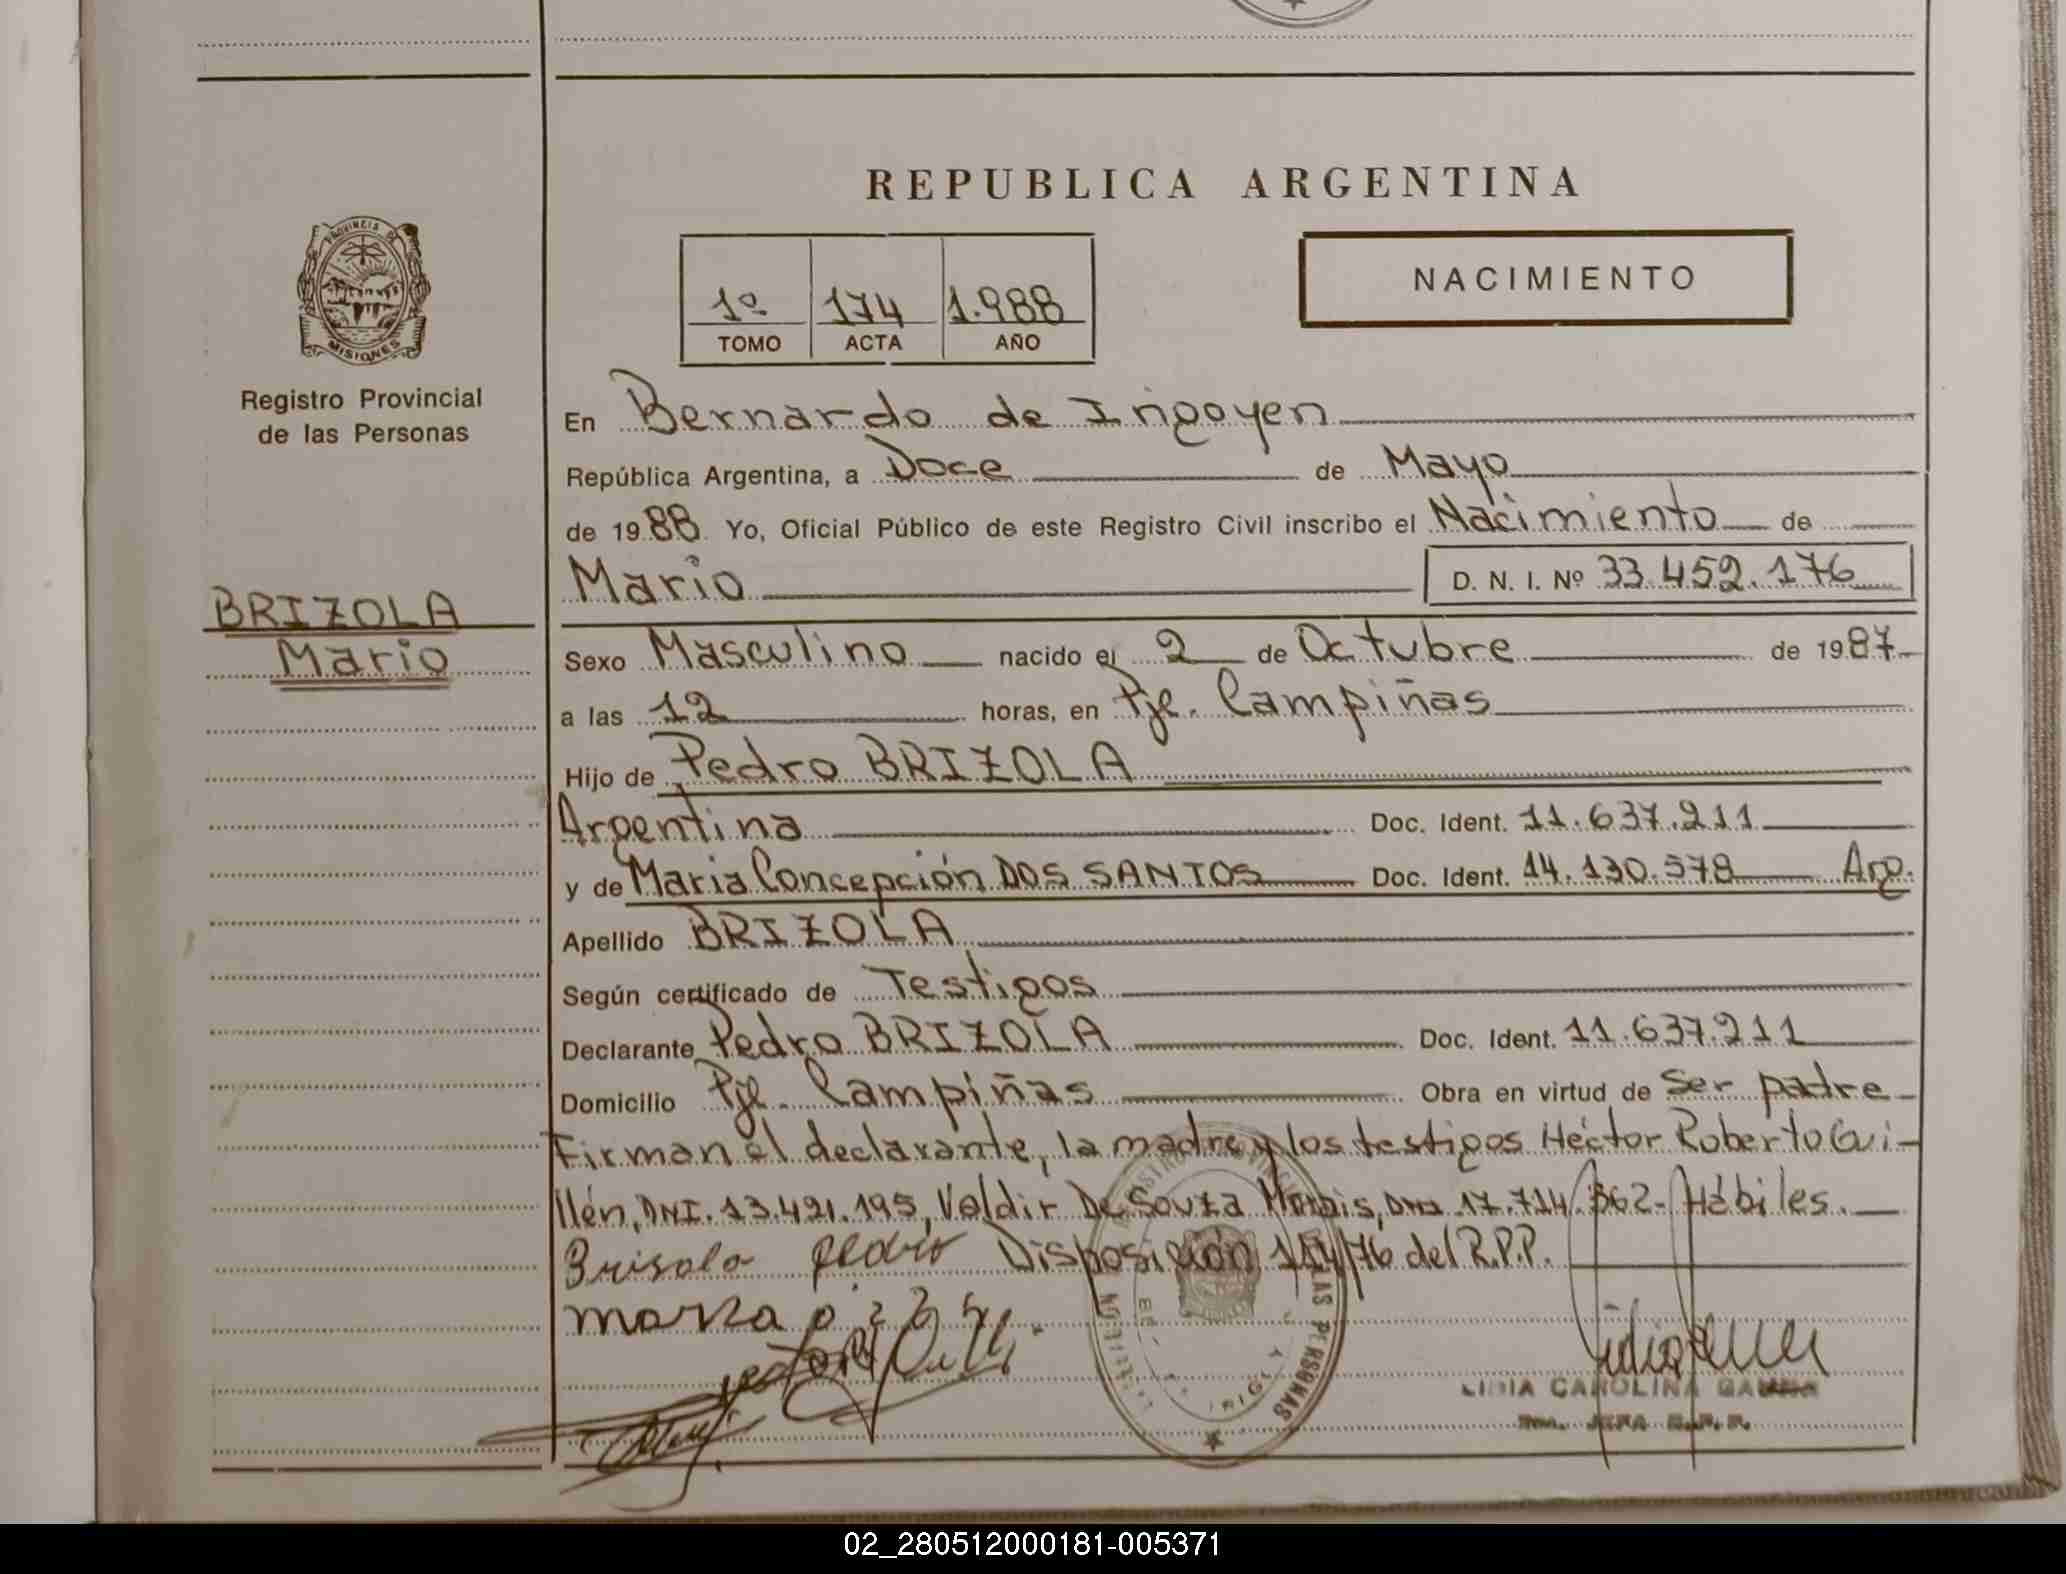 REPUBLICA ARGENTINA
PROVINCIA DE
MISIONES
Registro Provincial
de las Personas
1º 174 1.988
TOMO ACTA AÑO
NACIMIENTO
En Bernardo de Irigoyen
República Argentina, a Doce de Mayo
de 1988 Yo, Oficial Público de este Registro Civil inscribo el Nacimiento de
Mario D. N. I. Nº 33.452.176
BRIZOLA
Mario
Sexo Masculino nacido el 2 de Octubre de 1987
a las 12 horas, en Pje. Campiñas
Hijo de Pedro BRIZOLA
Argentina Doc. Ident. 11.637.211
y de Maria Concepción DOS SANTOS Doc. Ident. 14.130.578 Arg.
Apellido BRIZOLA
Según certificado de Testigos
Declarante Pedro BRIZOLA Doc. Ident. 11.637.211
Domicilio Pje. Campiñas Obra en virtud de Ser padre
Firman el declarante, la madre y los testigos Héctor Roberto Gui-
llén, DNI. 13.421.195, Valdir De Souza Morais, DNI 17.714.362- Hábiles.
Brisola Pedro Disposición 114/76 del R.P.P.
LIDIA CAROLINA
JEFA R.P.P.
LAS PERSONAS
02_280512000181-005371